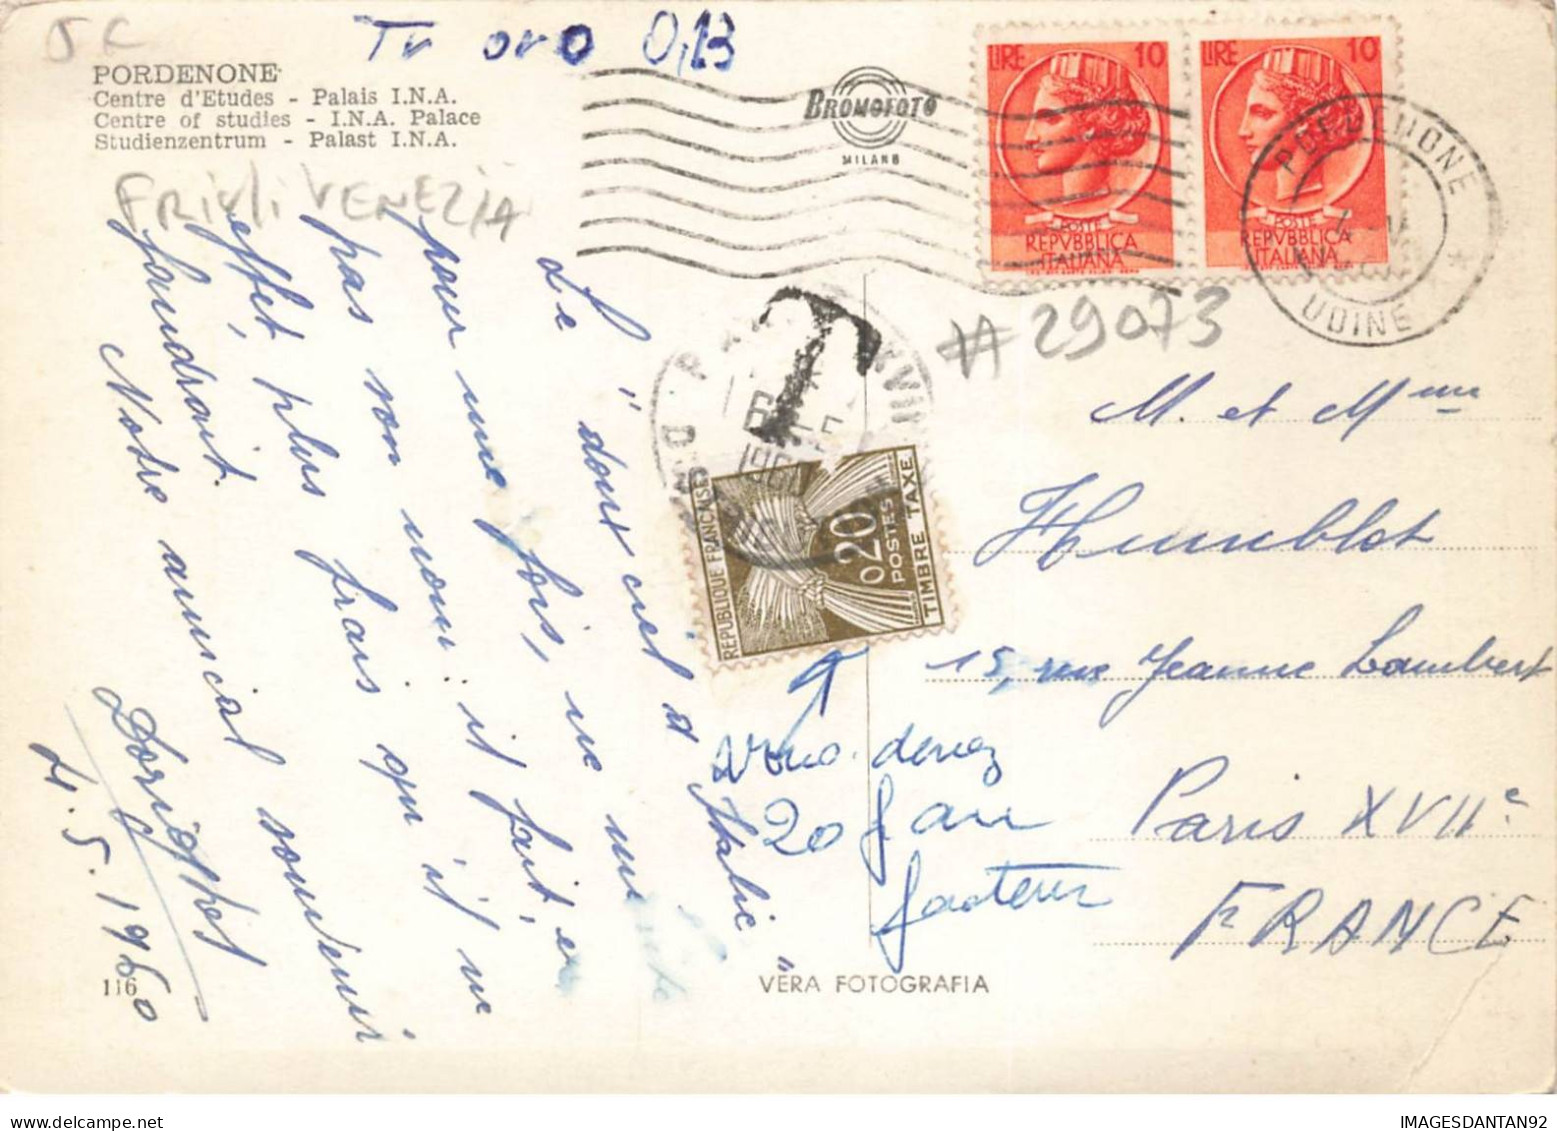 5 C
Tr oro 0,13
PORDENONE
Centre d'Etudes - Palais I.N.A.
Centre of studies - I.N.A. Palace
Studienzentrum - Palast I.N.A.
FRIULI VENEZIA
BROMOFOTO
MILANO
LIRE 10
POSTE
REPVBBLICA
ITALIANA
LIRE 10
POSTE
REPVBBLICA
ITALIANA
PORDENONE
UDINE
#29073
T
1960
REPUBLIQUE FRANÇAISE
0,20
POSTES
TIMBRE TAXE
Le "doux ciel d'Italie"
pour une fois, ne
pas son nom il fait, en
effet, plus frais qu'il ne
faudrait.
Notre amical souvenir
4.5.1960
vous devez
20 f au
facteur
M. et Mme
Humblot
15, rue Jeanne Lambert
Paris XVIIe
FRANCE
116
VERA FOTOGRAFIA
IMAGESDANTAN92